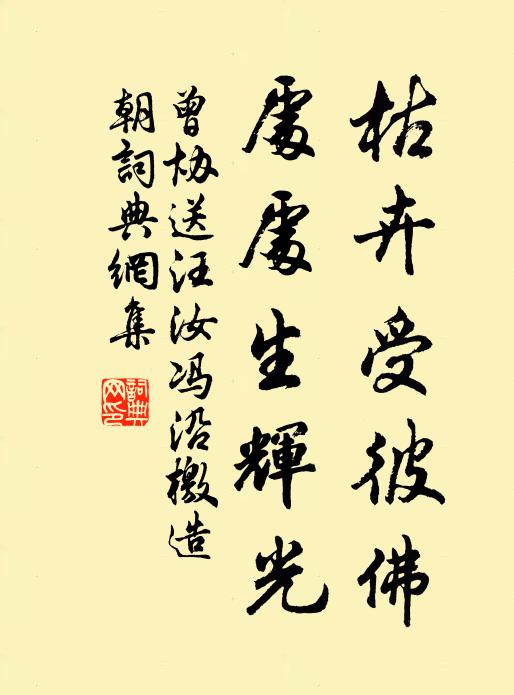 枯卉受彼佛
處處生輝光
曾協送汪汝馮沿檄造
朝詞典網集
詞典网印